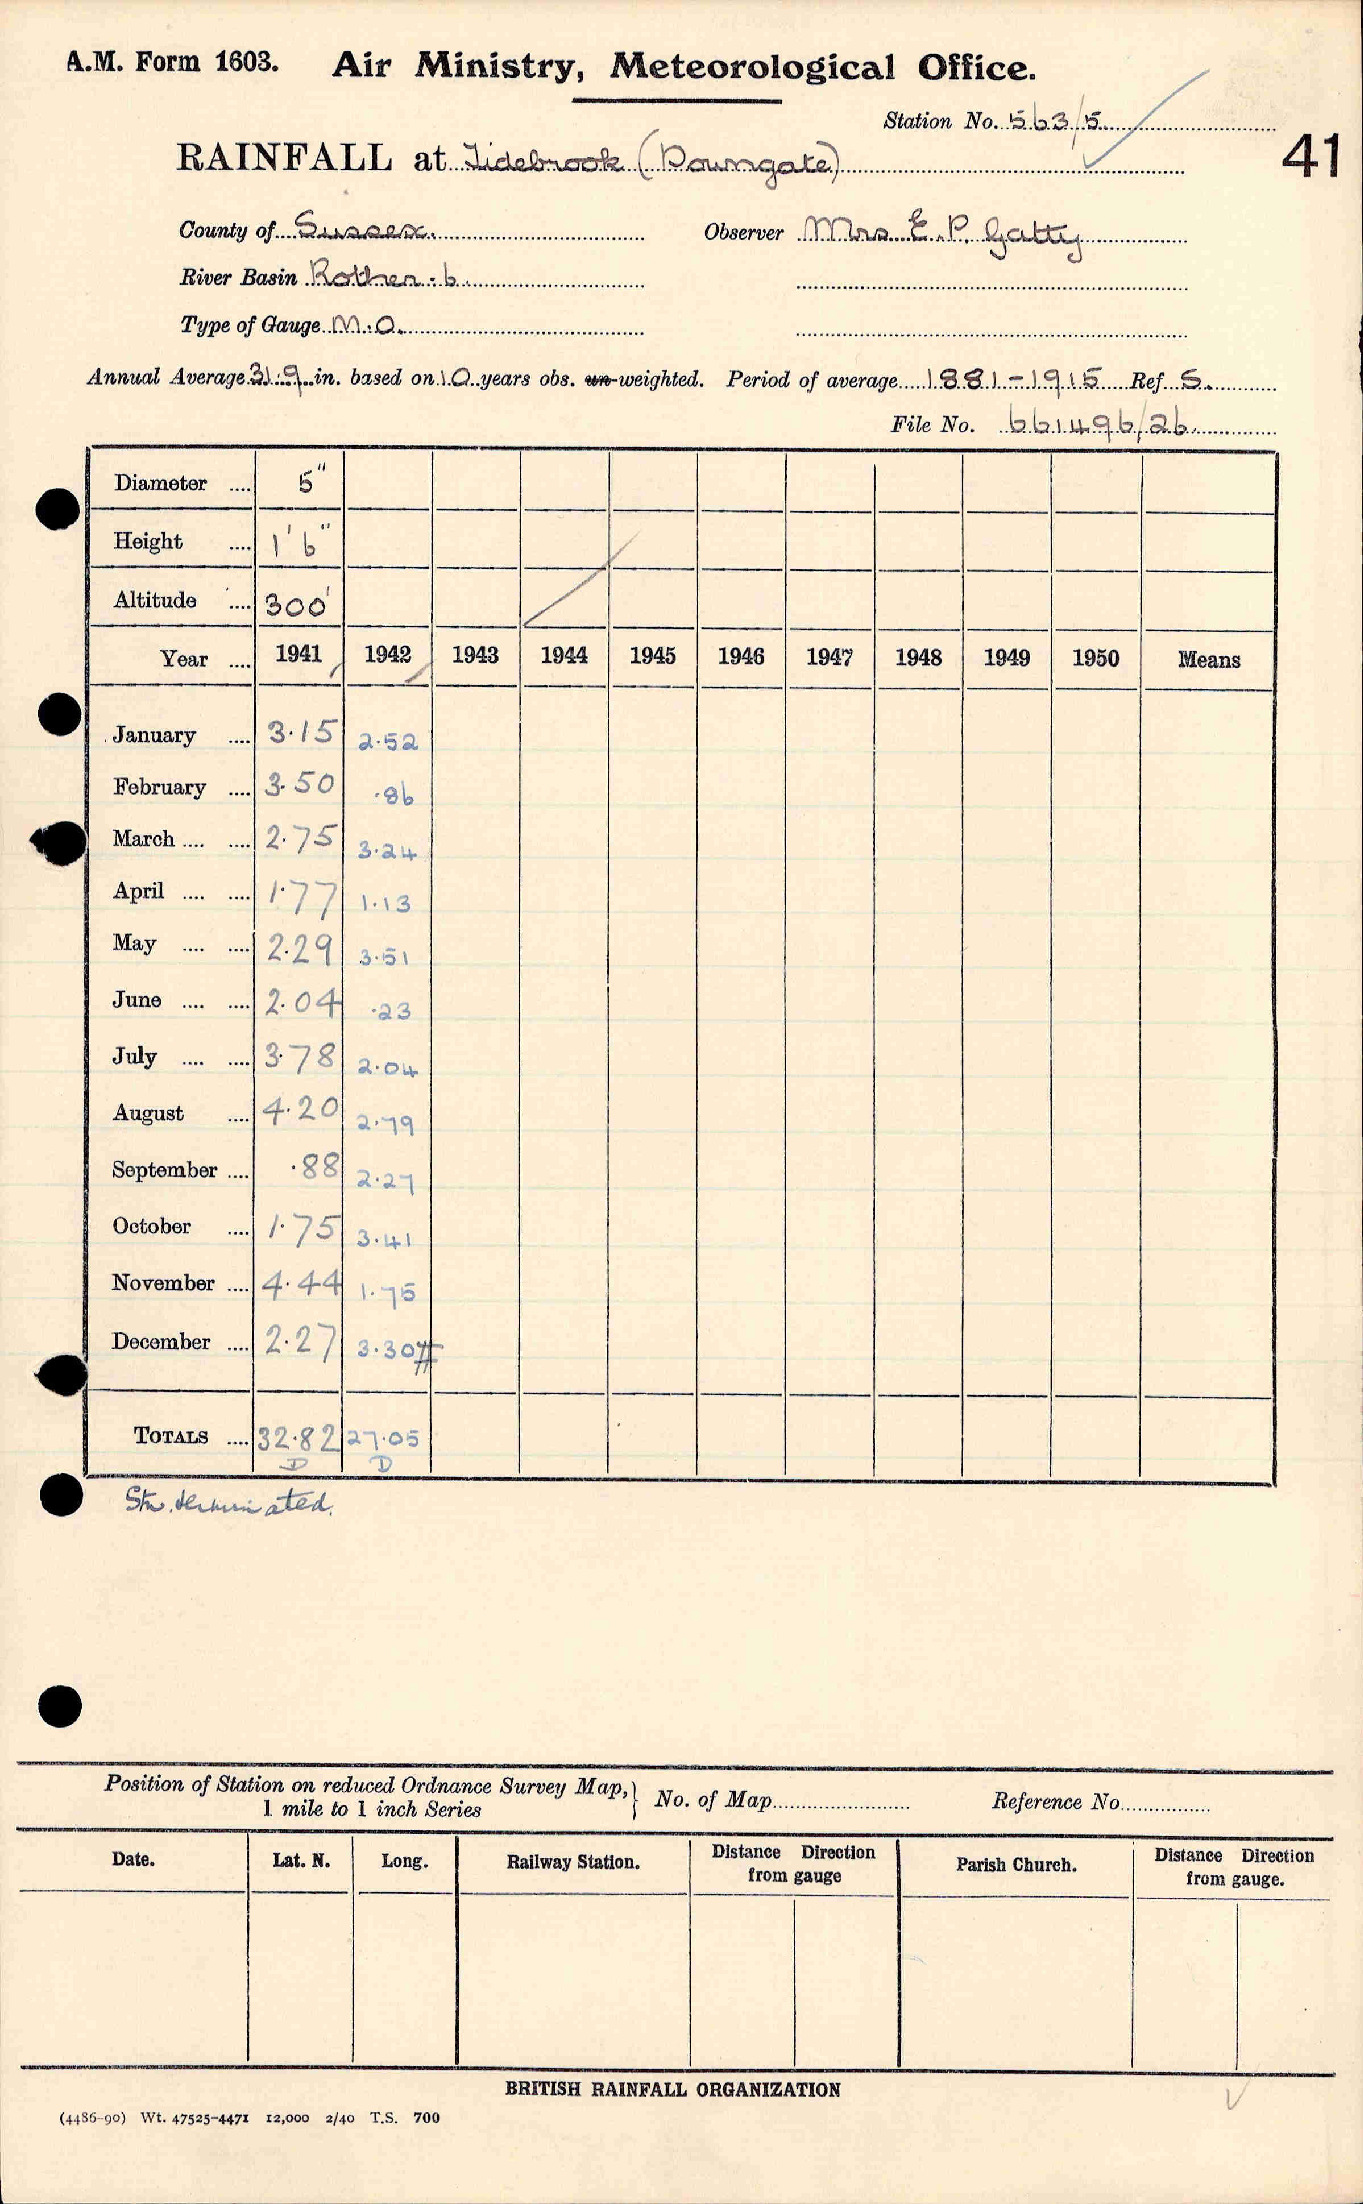 A.M. Form 1603. Air Ministry, Meteorological Office.
Station No. 563/5
RAINFALL at Tidebrook (Downgate) 41
County of Sussex. Observer Mrs E. P. Gatty
River Basin Rother - 6.
Type of Gauge M.O.
Annual Average 31.9 in. based on 10 years obs. un-weighted. Period of average 1881-1915 Ref S.
File No. 661496/26.
Diameter .... 5"
Height .... 1'6"
Altitude .... 300'
Year .... 1941 1942 1943 1944 1945 1946 1947 1948 1949 1950 Means
January .... 3.15 2.52
February .... 3.50 .86
March .... .... 2.75 3.24
April .... .... 1.77 1.13
May .... .... 2.29 3.51
June .... .... 2.04 .23
July .... .... 3.78 2.04
August .... 4.20 2.79
September .... .88 2.27
October .... 1.75 3.41
November .... 4.44 1.75
December .... 2.27 3.30#
TOTALS .... 32.82 27.05
D D
Stn. terminated.
Position of Station on reduced Ordnance Survey Map, } No. of Map Reference No
1 mile to 1 inch Series
Date. Lat. N. Long. Railway Station. Distance Direction from gauge Parish Church. Distance Direction from gauge.
BRITISH RAINFALL ORGANIZATION
(4486-90) Wt. 47525-4471 12,000 2/40 T.S. 700